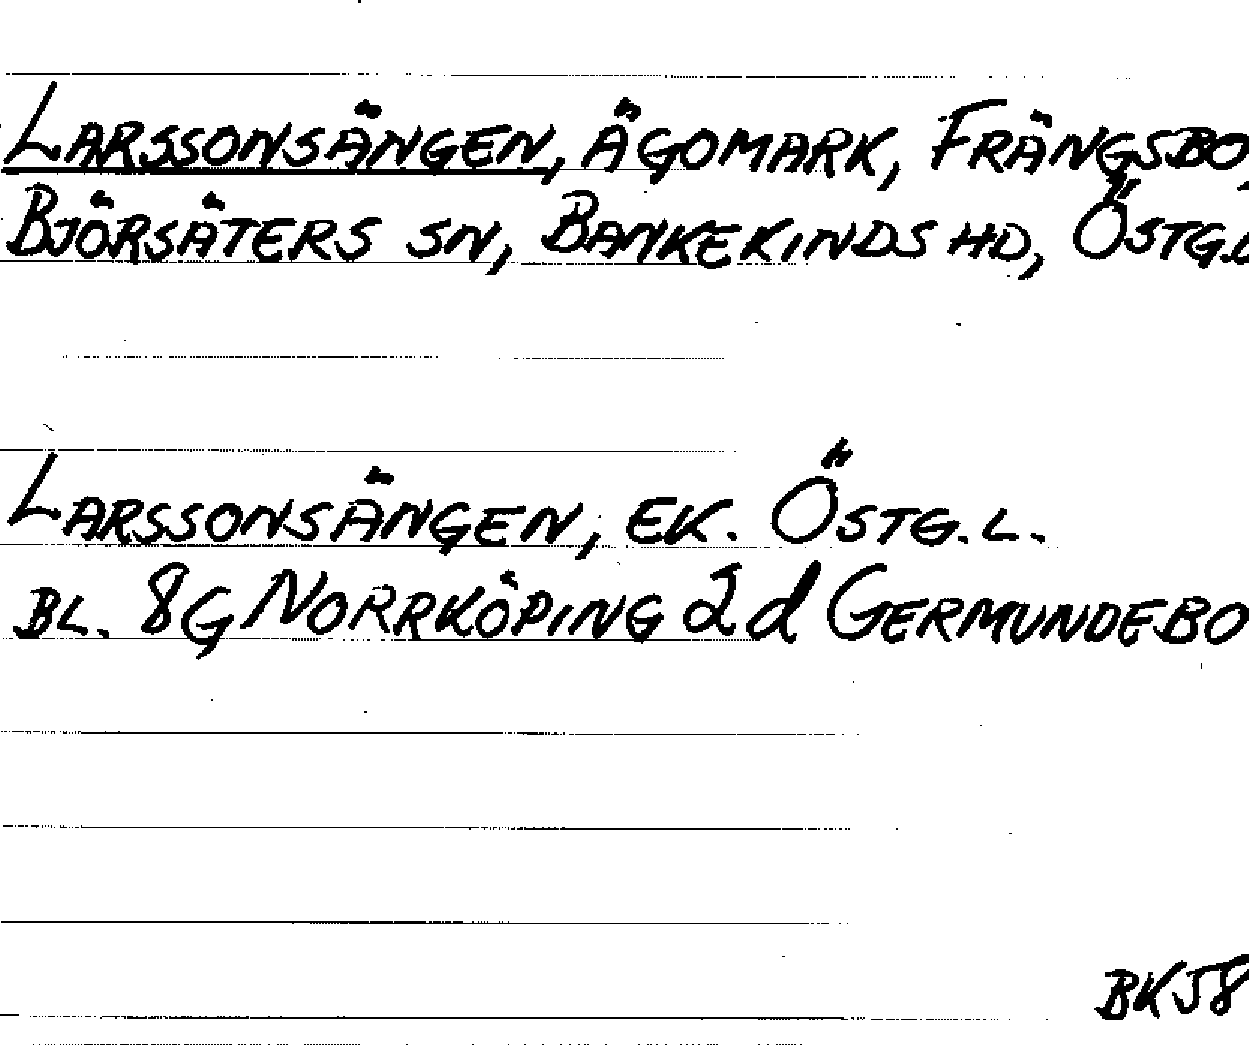 LARSSONSÄNGEN, ÄGOMARK, FRÄNGSBO,
BJÖRSÄTERS SN, BANKEKINDS HD, ÖSTG.L
LARSSONSÄNGEN, EK. ÖSTG. L.
BL. 8G NORRKÖPING 2d GERMUNDEBO
BK58